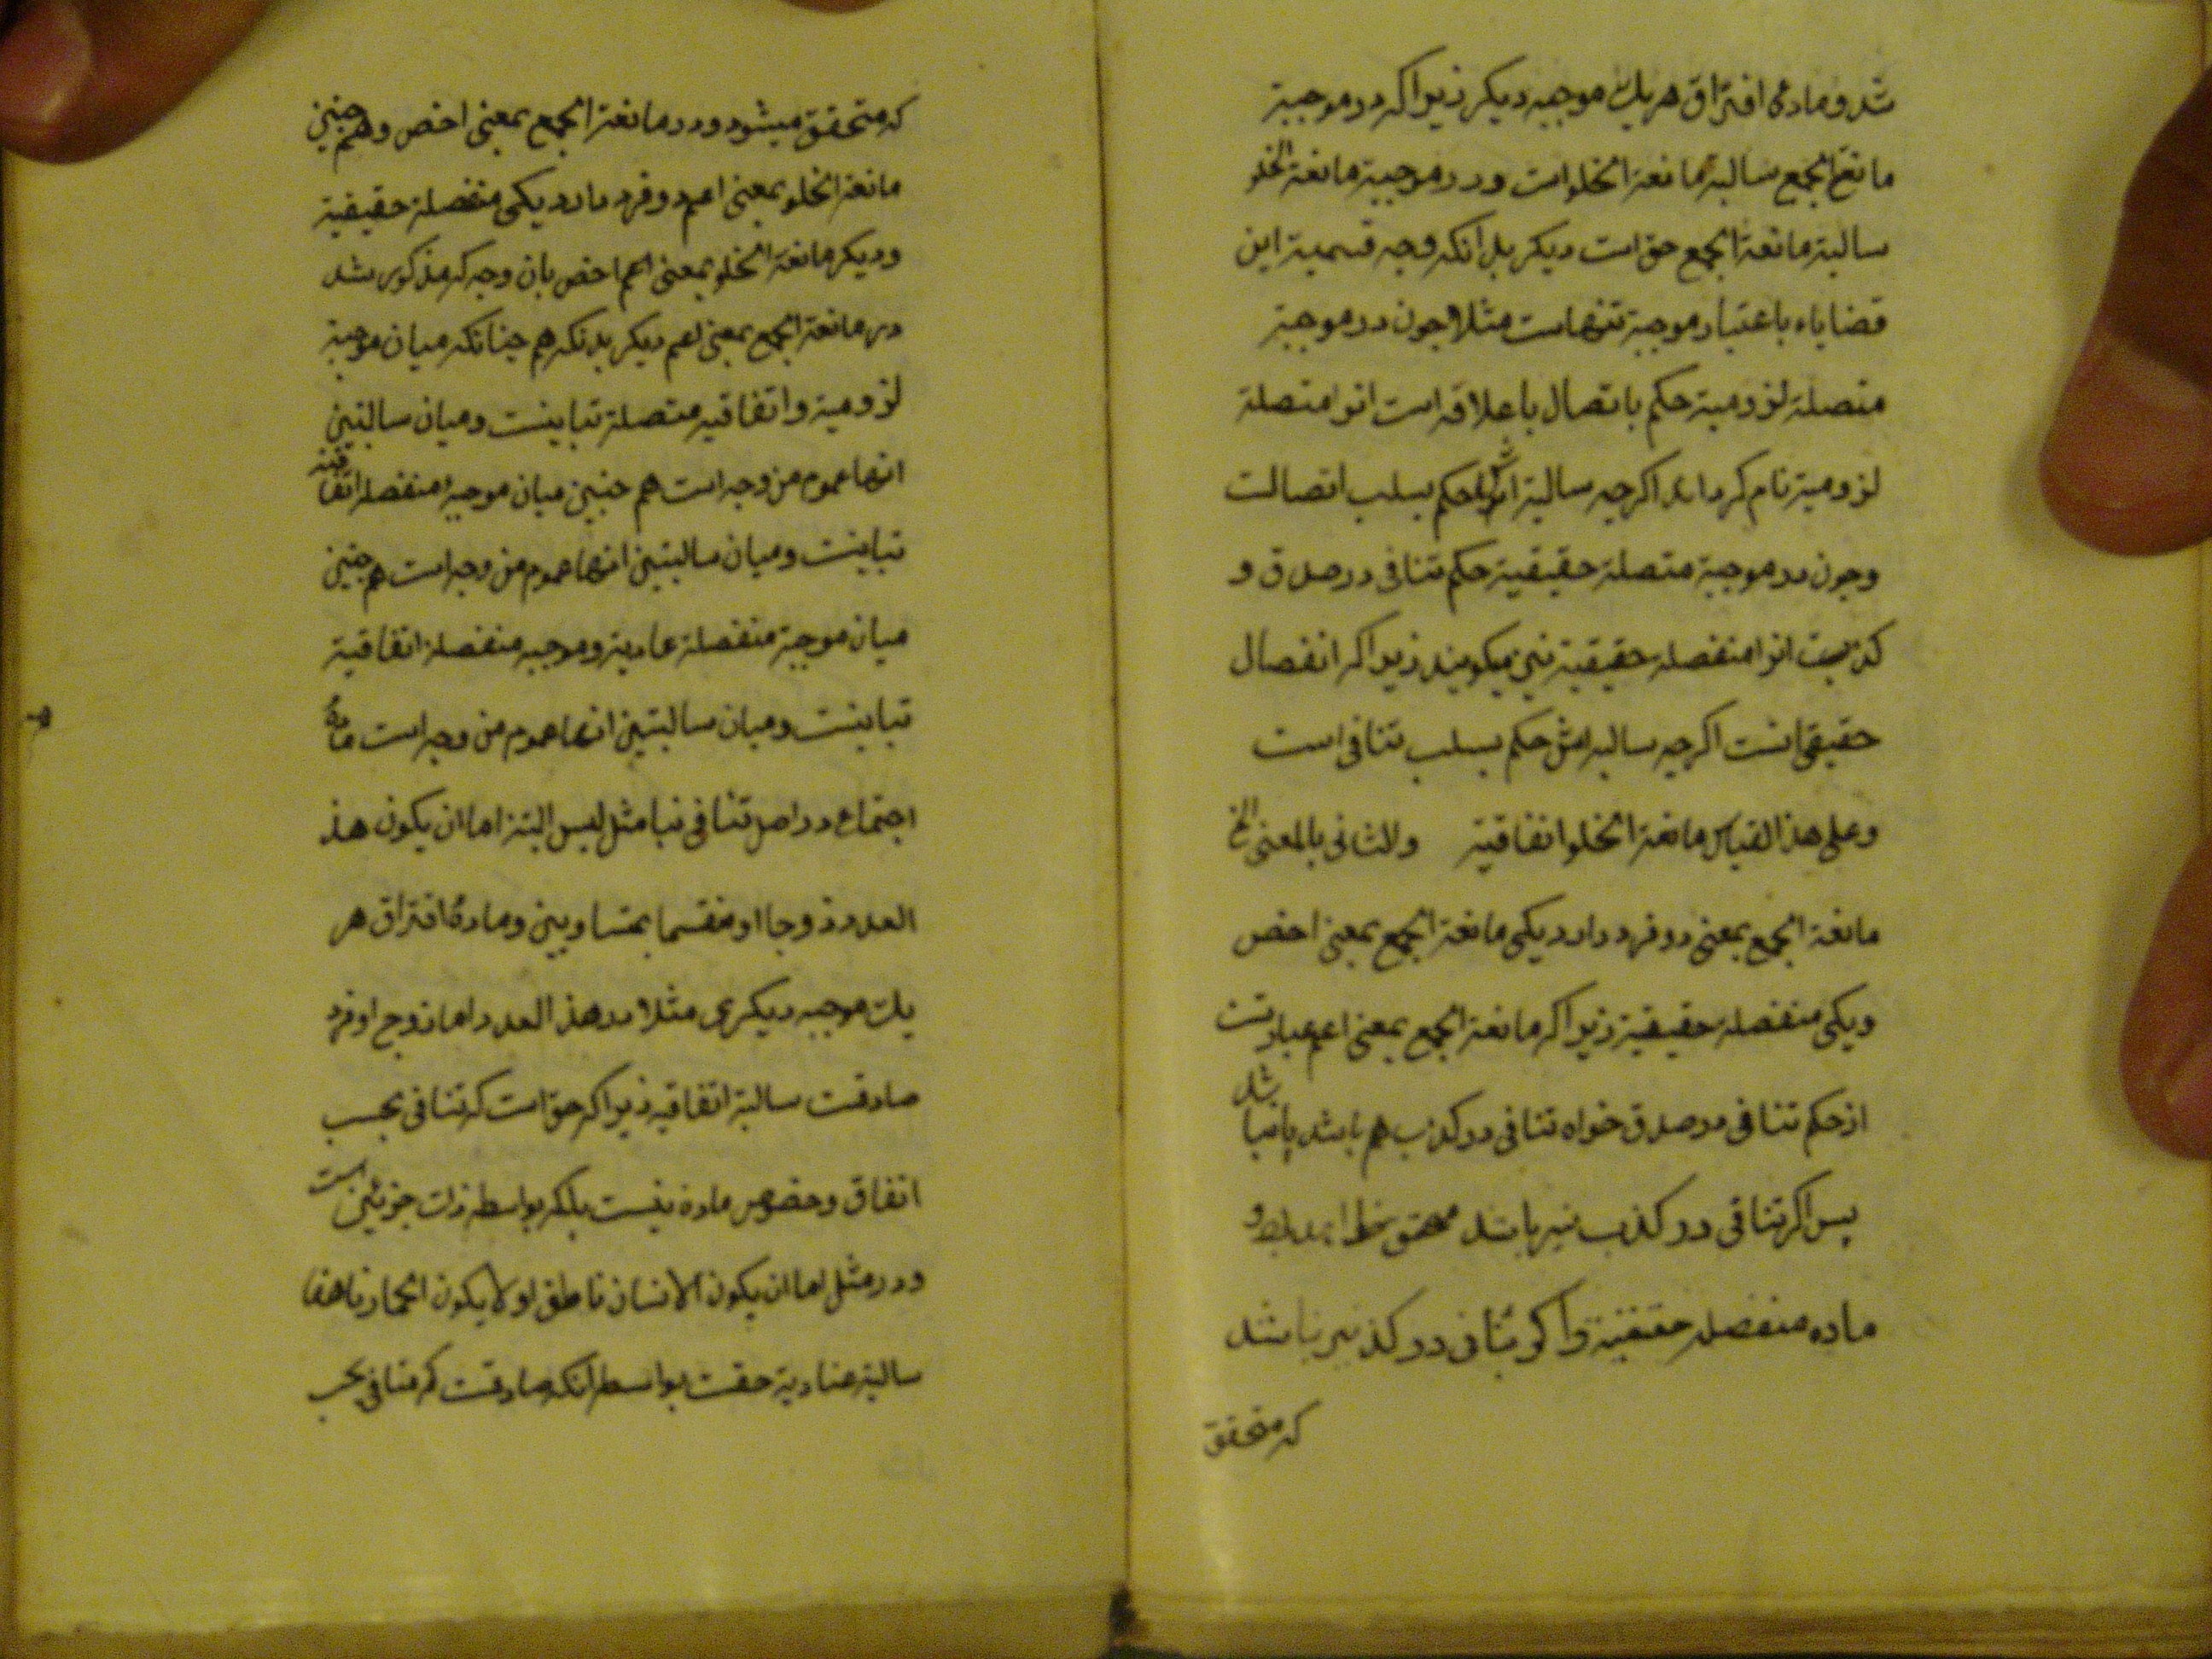 شد و مادهٔ افتراق هر یك موجبه دیکر زیرا که در موجبة
مانعة الجمع سالبة مانعة الخلو است و در موجبة مانعة الخلو
سالبة مانعة الجمع حق است دیکر بدانکه وجه تسمیة این
قضایاه باعتبار موجبة تنهاست مثلا چون در موجبة
متصلة لزومیة حکم باتصال باعلاقه است انرا متصلة
لزومیة نام کرده اند اکرچه سالبة حکم بسلب اتصالت
وجون در موجبة متصلة حقیقیة حکم تنافی در صدق و
کذبست انرا منفصله حقیقیة نیز میکویند زیرا که انفصال
حقیقی انست اکرچه سالبه اش حکم بسلب تنافی است
وعلی هذا القیاس مانعة الخلو اتفاقیة والثانی بالمعنی الخ
مانعة الجمع بمعنی دو فرد دارد یکی مانعة الجمع بمعنی اخص
ویکی منفصله حقیقیة زیرا که مانعة الجمع بمعنی اعم عبارتست
از حکم تنافی در صدق خواه تنافی در کذب هم باشد یا نباشد
پس اکر تنافی در کذب نیز باشد محقق
ماده منفصله حقیقیة واکر تنافی در کذب نیز نباشد
که متحقق
که متحقق میشود ودر مانعة الجمع بمعنی اخص وهم چنین
مانعة الخلو بمعنی اعم دو فرد دارد یکی منفصلة حقیقیة
ودیکر مانعة الخلو بمعنی اعم اخص بان وجه که مذکور شد
در مانعة الجمع بمعنی اعم دیکر بدنکه هم چنانکه میان موجبة
لزومیة واتفاقیه متصلة تباینست ومیان سالبتین
انها عموم من وجه است هم چنین میان موجبه منفصله اتفاقیه
تباینست ومیان سالبتین انها عموم من وجه است هم چنین
میان موجبة منفصلة عنادیة وموجبه منفصلة اتفاقیة
تباینست ومیان سالبتین انها عموم من وجه است مادهٔ
اجتماع در اصل تنافی نبا مثل لیس البتة اما ان یکون هذ
العدد زوجا او منقسما بمتساویین ومادهٔ افتراق هر
یك موجبه دیکری مثلا در هذ العدد اما زوج او فرد
صادقست سالبة اتفاقیه زیرا که حق است که تنافی بحسب
اتفاق وخصوص ماده نیست بلکه بواسطه ذات جزئین است
ودر مثل اما ان یکون الانسان ناطق او لا یکون الحمار ناهقا
سالبة عنادیة حقست بواسطه انکه صادقست که تنافی بحسب